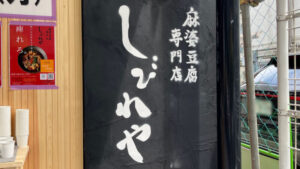 麻婆豆腐
専門店
しびれや
痺れろ